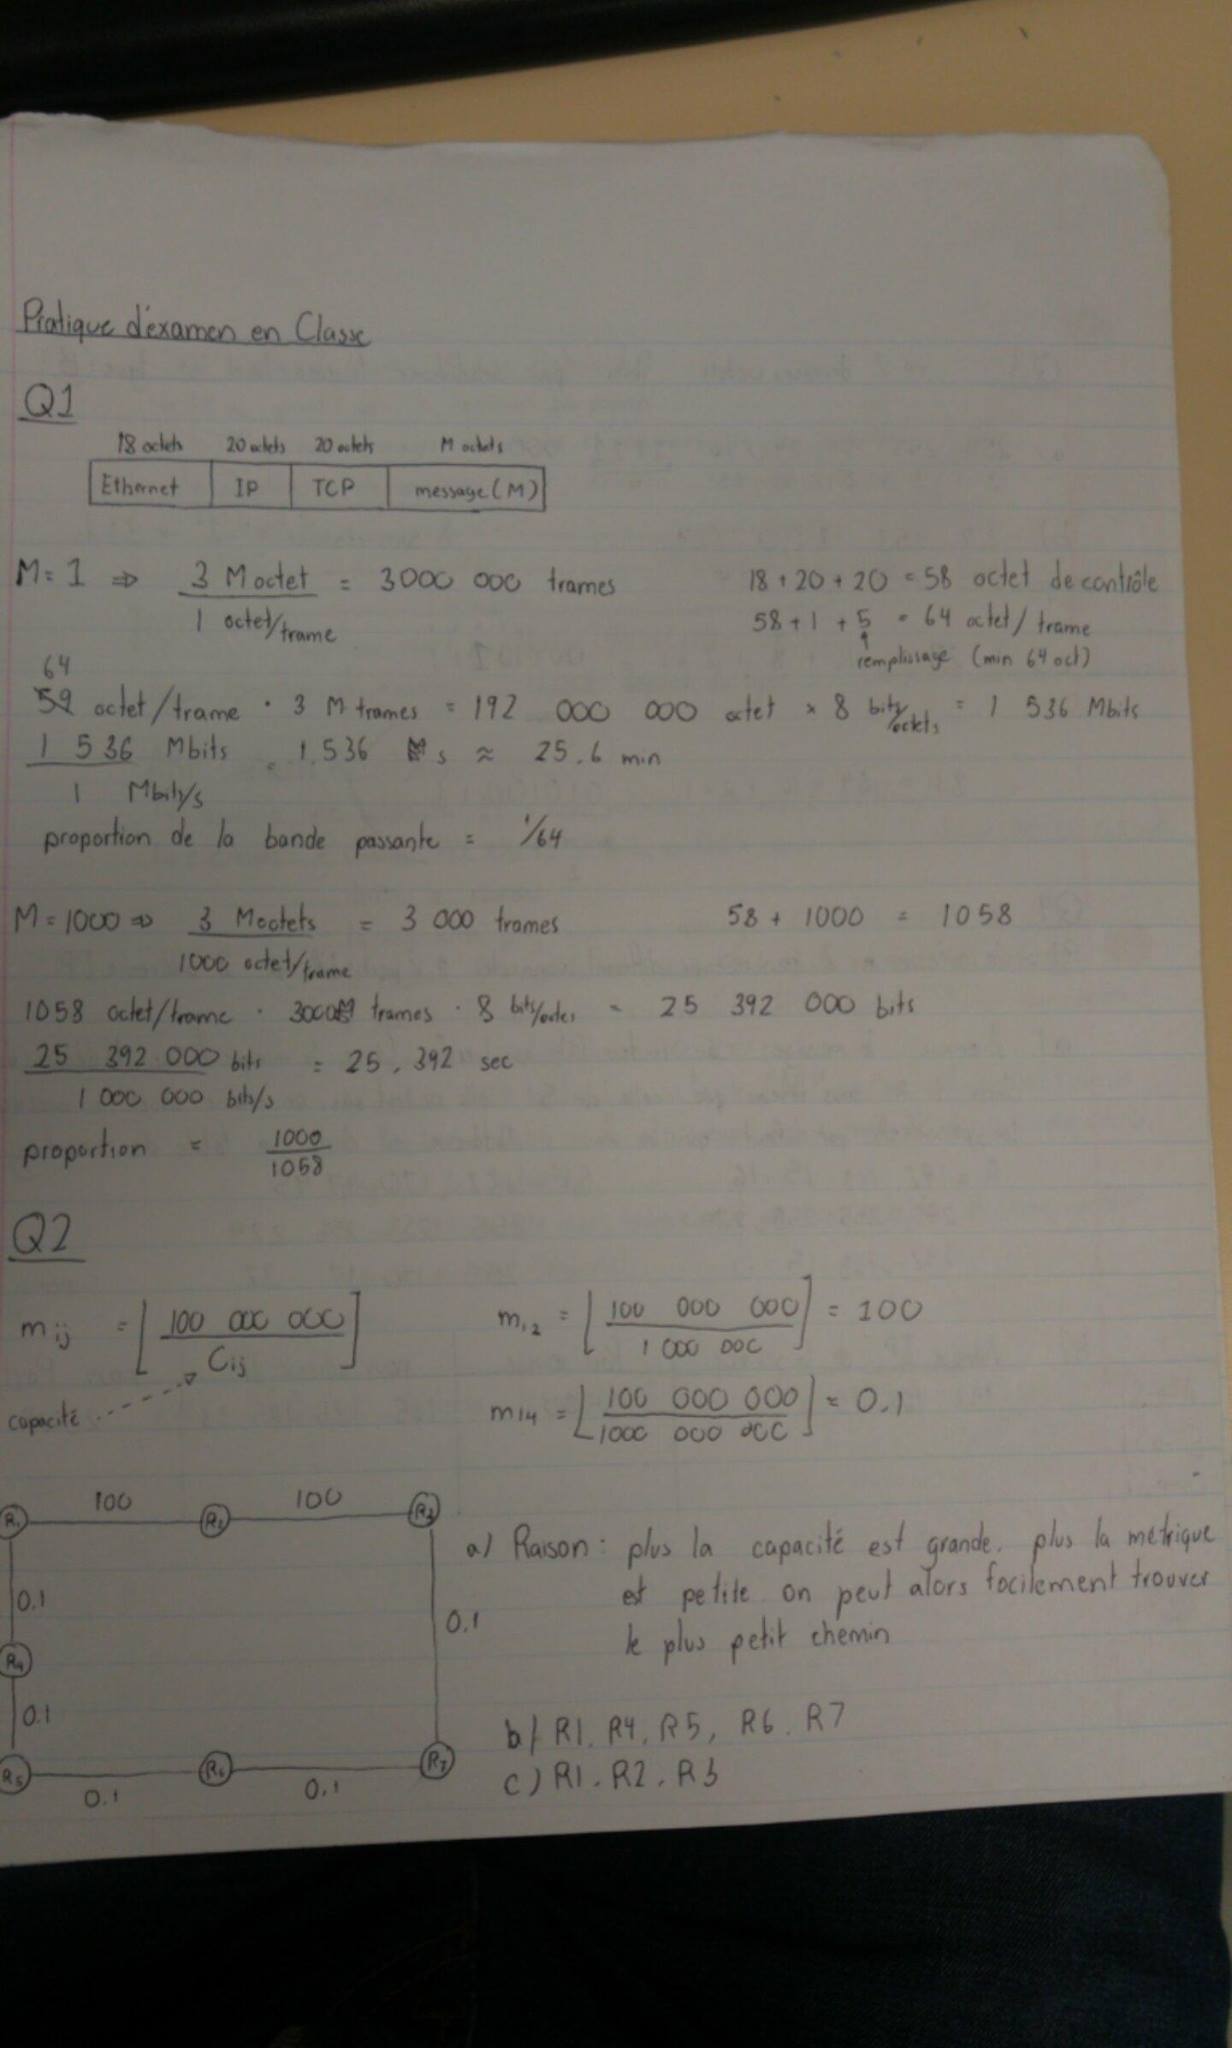 Pratique d'examen en Classe
Q1
18 octets 20 octets 20 octets M octets
Ethernet IP TCP message (M)
M = 1 ⇒ 3 Moctet / 1 octet/trame = 3000 000 trames
18 + 20 + 20 = 58 octet de contrôle
58 + 1 + 5 = 64 octet / trame
remplissage (min 64 oct)
64
59 octet/trame · 3 M trames = 192 000 000 octet × 8 bits/octets = 1 536 Mbits
1 536 Mbits / 1 Mbit/s = 1.536 s ≈ 25.6 min
proportion de la bande passante = 1/64
M = 1000 ⇒ 3 Moctets / 1000 octet/trame = 3 000 trames
58 + 1000 = 1058
1058 octet/trame · 3000 trames · 8 bits/octet = 25 392 000 bits
25 392 000 bits / 1 000 000 bits/s = 25,392 sec
proportion = 1000 / 1058
Q2
mij = ⌊100 000 000 / Cij⌋
capacité
m12 = ⌊100 000 000 / 1 000 000⌋ = 100
m14 = ⌊100 000 000 / 1000 000 000⌋ = 0.1
100 100
R1 R2 R3
0.1
0.1
R4
0.1
R5 R6 R7
0.1 0.1
a) Raison : plus la capacité est grande. plus la métrique
est petite on peut alors facilement trouver
le plus petit chemin
b) R1. R4. R5, R6. R7
c) R1. R2. R3